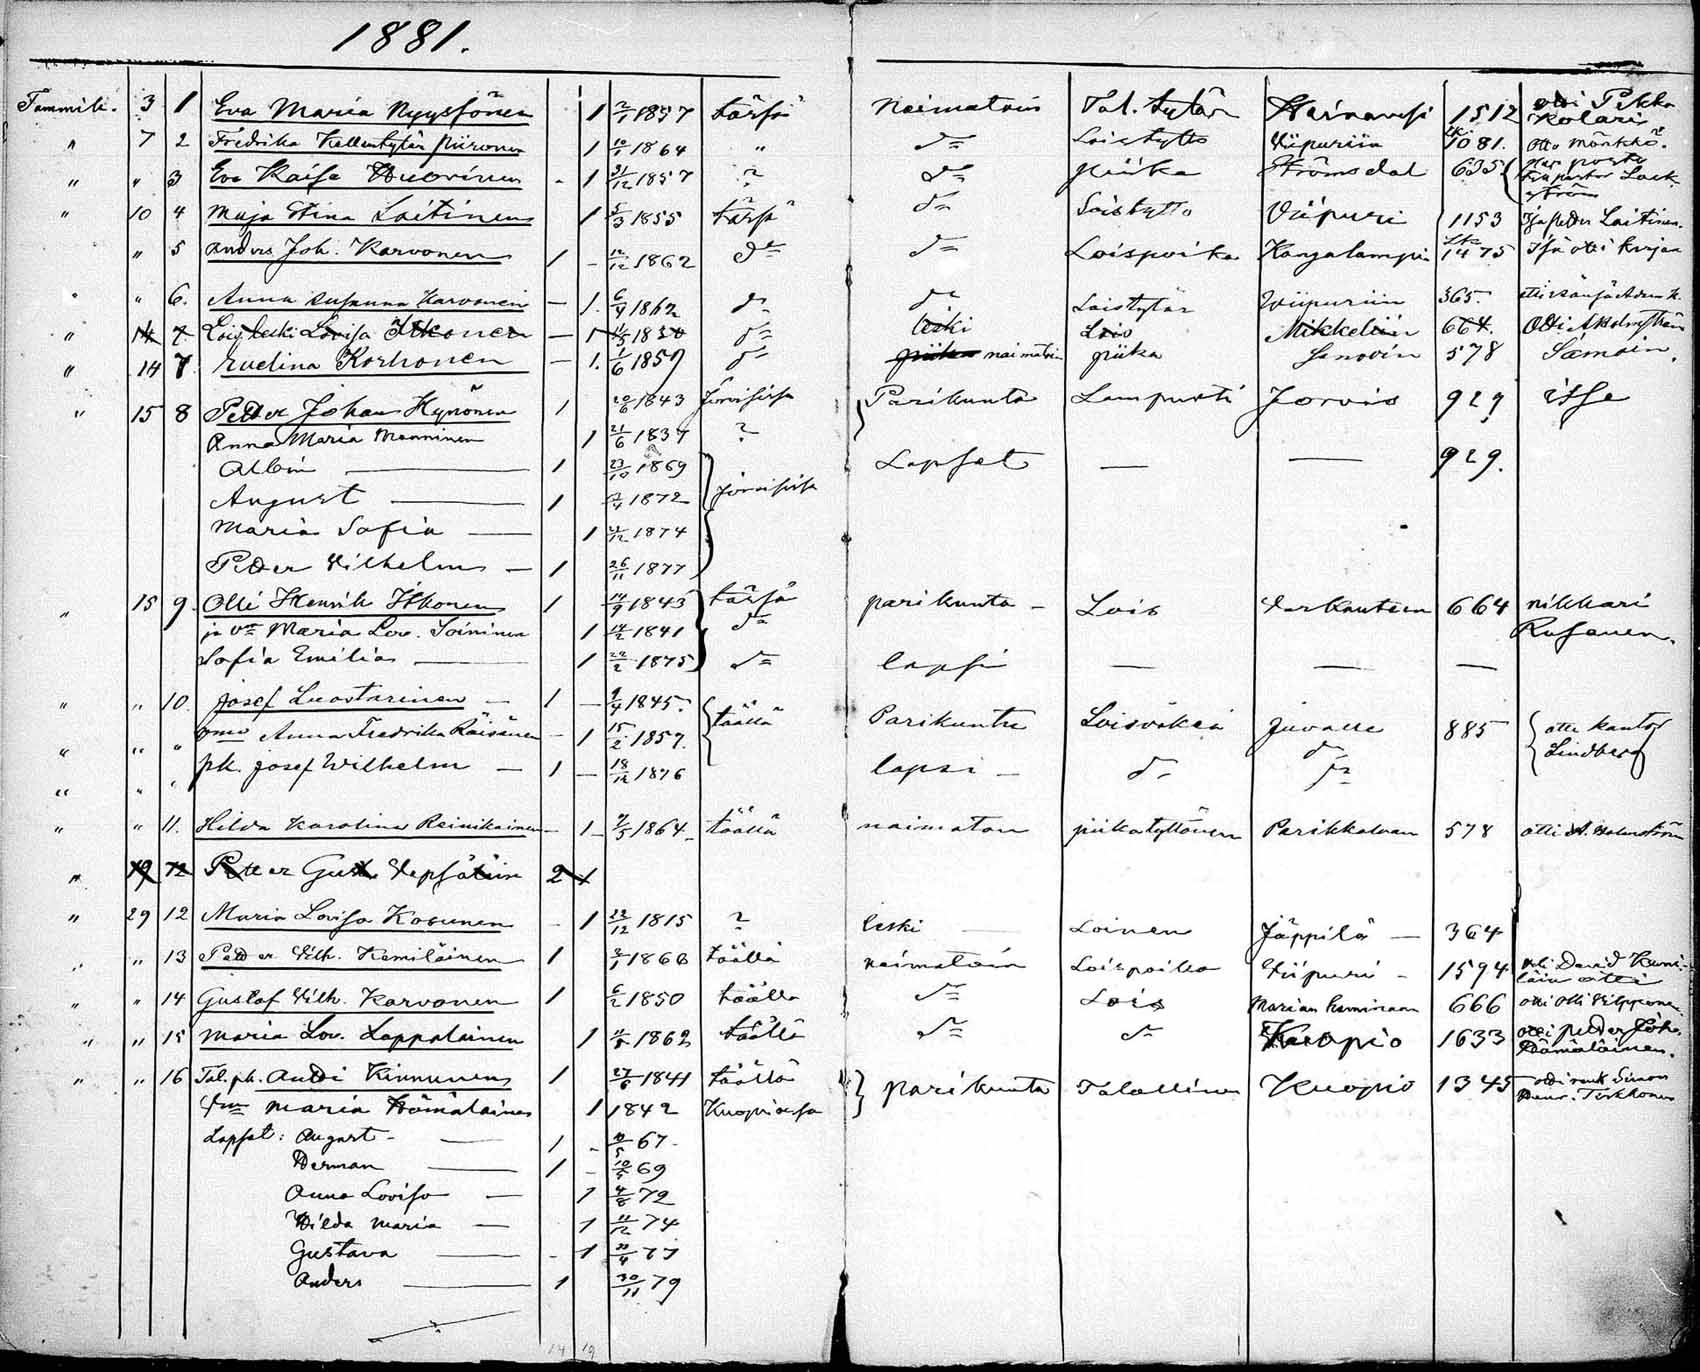 1881.
Tammik. 3 1 Eva Maria Nyyssönen 1 1857 tässä Naimatoin Tal. tytär Heinävesi 1512 otti Pekka Kolari
" 7 2 Fredrika Kellentytär Piironen 1 10/1 1864 " do Loistyttö Viipuriin 1081. Otto Mönkkö.
" " 3 Eva Kaisa Huovinen - 1 31/12 1857 ? do Piika Strömsdal 635
" 10 4 Maja Stina Laitinen 1 5/3 1855 tässä do Loistyttö Viipuri 1153 Isä Petter Laitinen.
" 5 Anders Joh. Karvonen 1 - 1862 do do Loispoika Kangaslampiin 1475 Isä otti kirjan
" " 6. Anna Susanna Karvonen - 1. 6/4 1862 do do Loistytär Wiipuriin 365.
" 14 7. Lois leski Lovisa Itkonen - 1 do leski Lois Mikkeliin 664. Otti A Holmström
" 14 7 Evelina Korhonen - 1. 1/6 1859 do piika naimatoin piika Savoniin 578 Samoin.
" 15 8 Petter Johan Hynönen 1 20/6 1843 Joroisissa Parikunta Lampuoti Jorois 929 itse
Anna Maria Manninen 1 21/6 1837 ?
Albin 1 23/10 1869 Joroisissa Lapset 929.
August 1 1872
Maria Sofia 1 1874
Petter Vilhelm 1 26/11 1877
" 15 9 Olli Henrik Itkonen 1 14/9 1843 tässä parikunta - Lois Varkauteen 664 nikkari
ja vo Maria Lov. Soininen 1 14/2 1841 do Rusanen.
Sofia Emilia 1 22/2 1875 do lapsi
" " 10. Josef Luostarinen - 1 - 9/4 1845. täällä Parikunta Loisväkeä Juvalle 885 otti kantor
" " " vmo Anna Fredrika Räisänen - 1 15/2 1857. do Lindberg
" " " pk. Josef Wilhelm - 1 - 18/12 1876 lapsi - do do
" " 11. Hilda Karolina Reinikainen - 1 - 1864 - täällä naimaton piikatyttönen Parikkalaan 578 otti A. Holmström
" 19 12 Petter Gust. Vepsäläin 2 1
" 29 12 Maria Lovisa Kosunen - 1 22/12 1815 ? leski Loinen Jäppilä - 364
" " 13 Petter Vilh. Kemiläinen 1 1866 täällä naimatoin Loispoika Viipuri - 1594 veli David Kemiläin otti
" " 14 Gustaf Vilh. Karvonen 1 6/2 1850 täällä do Lois Marian kaminaan 666 otti Olli Vilpponen.
" " 15 Maria Lov. Lappalainen 1 1862 täällä do do Kuopio 1633 otti Petter Joh. Hämäläinen.
" " 16 Tal. pk. Antti Kinnunen 1 27/6 1841 täällä parikunta Talollinen Kuopio 1345
Vmo Maria Hämäläinen 1 1842 Kuopiossa
Lapset: August - 1 - 67 -
Herman 1 - 69
Anna Lovisa - 1 4/8 72
Hilda Maria - 1 11/12 74
Gustava - 1 77
Anders 1 30/11 79
14 19